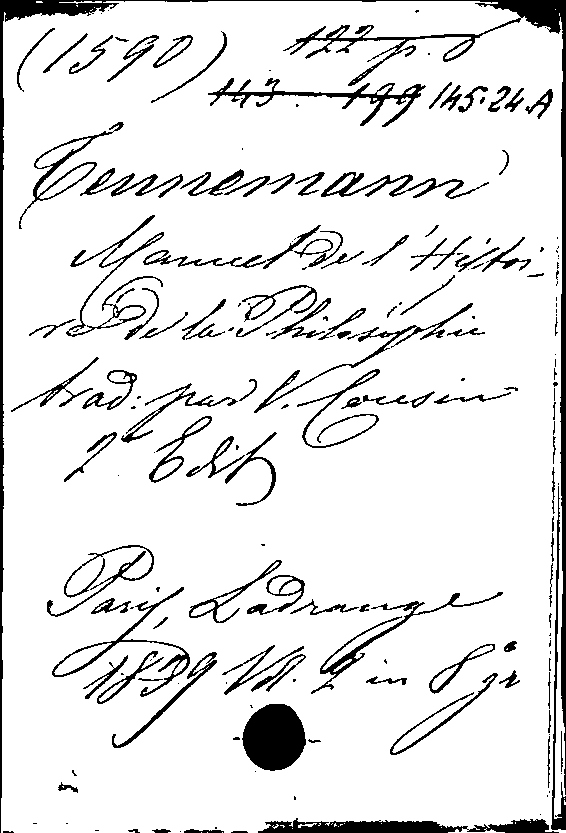 (1590) 122 p. 8
143. 199 145.24.A
Tennemann
Manuel de l'Histoi-
re de la Philosophie
trad: par V. Cousin
2e Edit
Paris, Ladrange
1839 Vol. 2 in 8 gr